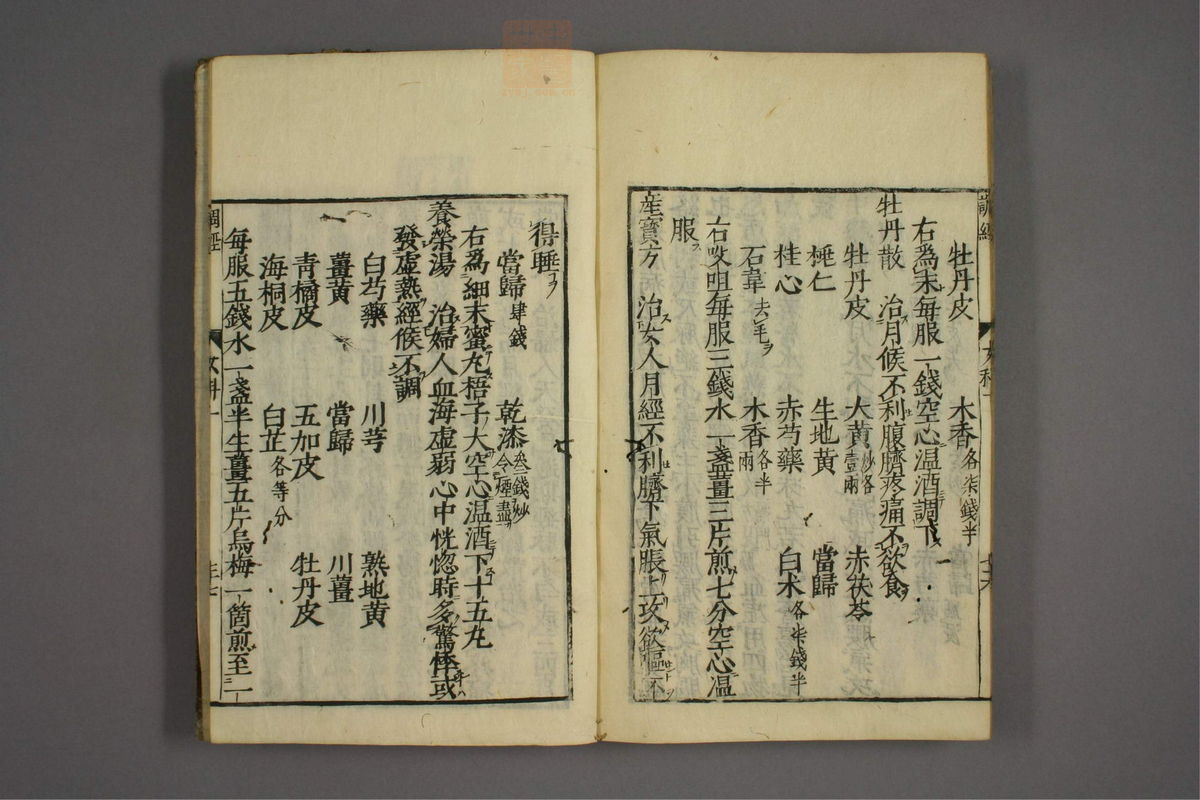 牡丹皮　木香各柒錢半
右爲末每服一錢空心温酒調下
牡丹散　治月候不利腹臍疼痛不欲食
牡丹皮　大黄炒各壹兩　赤茯苓
桃仁　生地黄　當歸
桂心　赤芍藥　白朮各柒錢半
石韋去毛ヲ　木香各半兩
右㕮咀毎服三錢水一盞薑三片煎七分空心温
服ス
産寳方　治女人月經不利臍下氣脹上攻欲嘔不
得睡ヲ
當歸肆錢　乾漆叁錢炒令煙盡
右爲細末蜜丸梧子大空心温酒下十五丸
養榮湯　治婦人血海虚弱心中恍惚時多驚悸或
發虚熱經候不調
白芍藥　川芎　熟地黄
薑黄　當歸　川薑
青橘皮　五加皮　牡丹皮
海桐皮　白芷各等分
毎服五錢水一盞半生薑五片烏梅一箇煎至一
調經　女科一